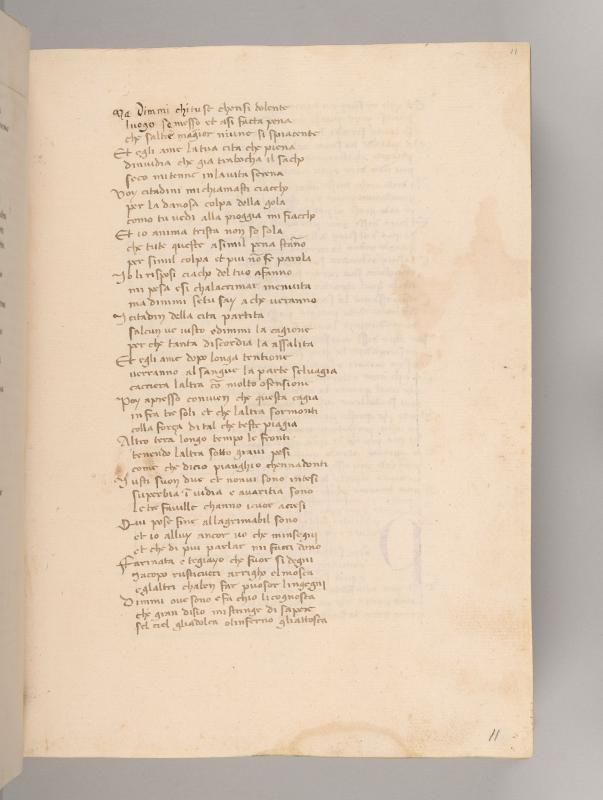 11
Ma Dimmi chi tu se che nsi dolente
luogo se messo et asi facta pena
che saltre magior niune si spiacente
Et egli ame la tua cita che piena
dinvidia che gia trabocha il sacho
seco mi tenne in la vita serena
Voy citadini mi chiamasti ciaccho
per la danosa colpa della gola
como tu vedi alla pioggia mi fiaccho
Et io anima trista non so sola
che tute queste a simil pena stano
per simil colpa et piu no fe parola
Io li risposi ciacho del tuo afanno
mi pesa esi chalacrimar menvita
ma dimmi se tu say a che veranno
I citadin della cita partita
salcun ve iusto edimmi la cagione
per che tanta discordia la assalita
Et egli ame dopo longa tentione
verranno al sangue la parte selvagia
cacciera laltra co molto ofensione
Poy apresso convien che questa cagia
infra tre soli et che laltra sormonti
colla força di tal che teste piagia
Altro terra longo tempo le fronti
tenendo laltra sotto gravi pesi
come che dicio pianghi o chennadonti
Iusti suon due et nonvi sono intesi
superbia invidia e avaritia sono
le tre faville channo i cuor acesi
Qui pose fine al lagrimabil sono
et io alluy ancor vo che minsegni
et che di piu parlar mi facci dono
Farinata e tegiayo che fuor si degni
Jacopo rusticucci arrigho el mosca
e glaltri chaben far puoser lingegni
Dimmi ove sono e fa chio li cognosca
che gran disio mi stringe di sapere
sel ciel gliadolca o linferno gliattosca
11